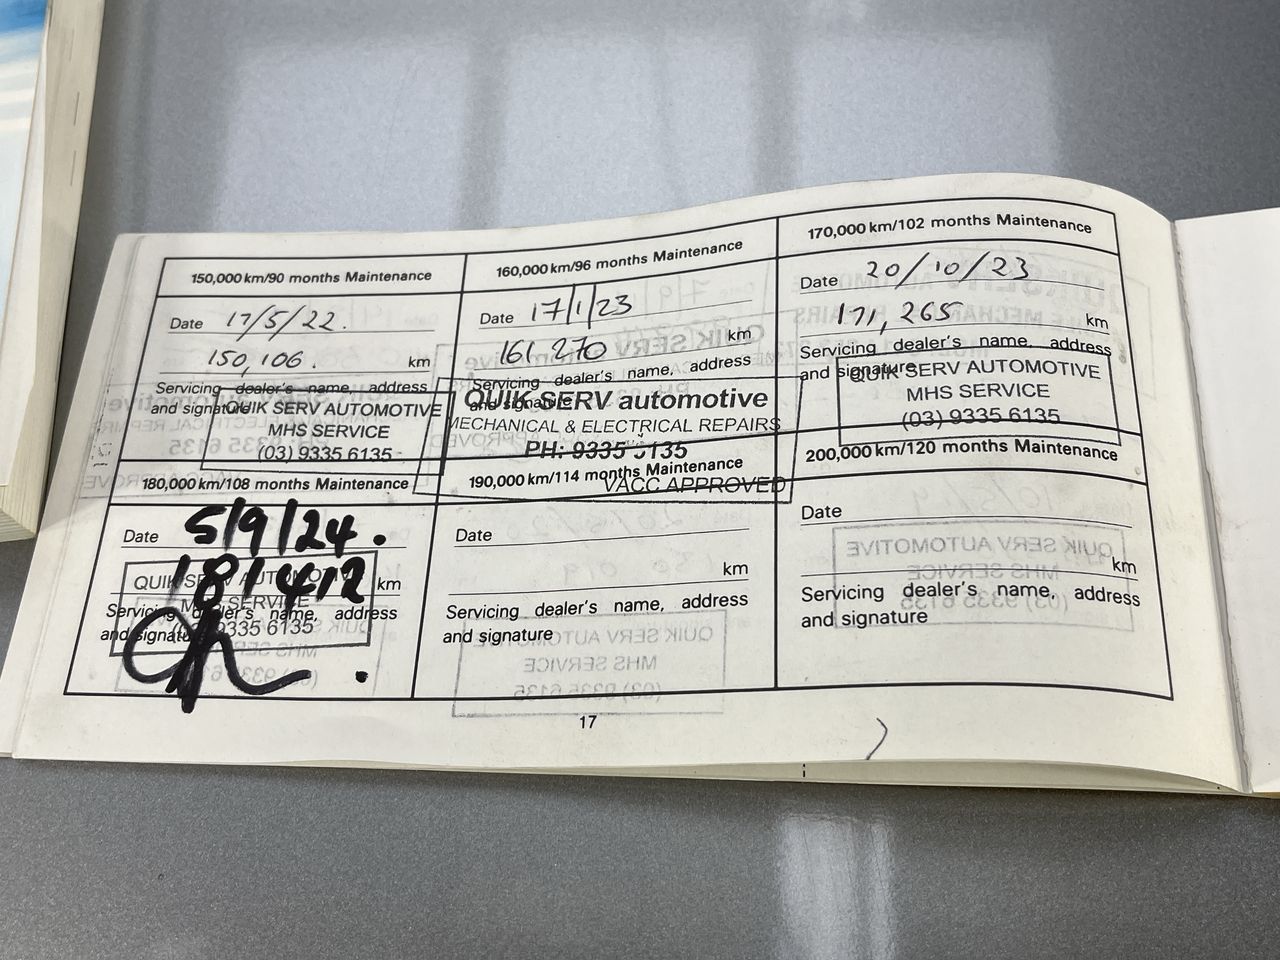 150,000 km/90 months Maintenance
Date 17/5/22.
150,106. km
Servicing dealer's name, address
and signature
QUIK SERV AUTOMOTIVE
MHS SERVICE
(03) 9335 6135
160,000 km/96 months Maintenance
Date 17/1/23
161 270 km
Servicing dealer's name, address
and signature
QUIK SERV automotive
MECHANICAL & ELECTRICAL REPAIRS
PH: 9335 6135
VACC APPROVED
170,000 km/102 months Maintenance
Date 20/10/23
171, 265 km
Servicing dealer's name, address
and signature
QUIK SERV AUTOMOTIVE
MHS SERVICE
(03) 9335 6135
180,000 km/108 months Maintenance
Date 5/9/24.
181412 km
Servicing dealer's name, address
and signature
QUIK SERV AUTOMOTIVE
MHS SERVICE
9335 6135
190,000 km/114 months Maintenance
Date
km
Servicing dealer's name, address
and signature
200,000 km/120 months Maintenance
Date
km
Servicing dealer's name, address
and signature
17